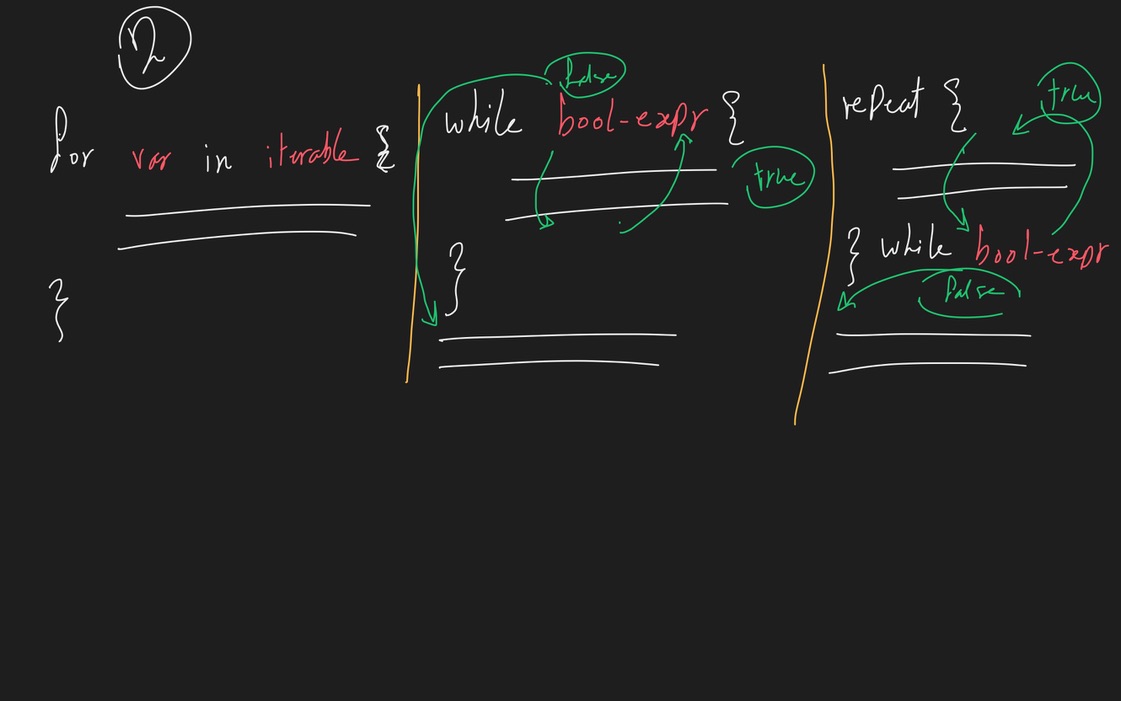 for var in iterable {
}
while bool-expr {
false
true
}
repeat {
true
} while bool-expr
false